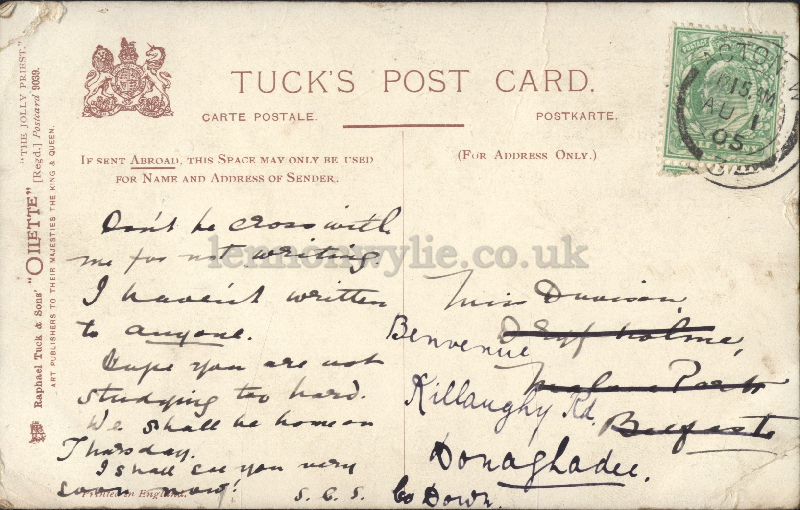 "THE JOLLY PRIEST."
Raphael Tuck & Sons' "OILETTE" [Regd.] Postcard 9039.
ART PUBLISHERS TO THEIR MAJESTIES THE KING & QUEEN.
TUCK'S POST CARD.
CARTE POSTALE.
POSTKARTE.
IF SENT ABROAD, THIS SPACE MAY ONLY BE USED
FOR NAME AND ADDRESS OF SENDER.
(FOR ADDRESS ONLY.)
ACTON. W
AU 1
05
Don't be cross with
me for not writing
I haven't written
to anyone.
Hope you are not
studying too hard.
We shall be home on
Thursday.
I shall see you very
soon now!
S. C. S.
Printed in England.
Miss Davison,
Holme,
Benvenue
Malone Park
Killaughy Rd.
Belfast
Donaghadee.
Co Down.
lennonwylie.co.uk